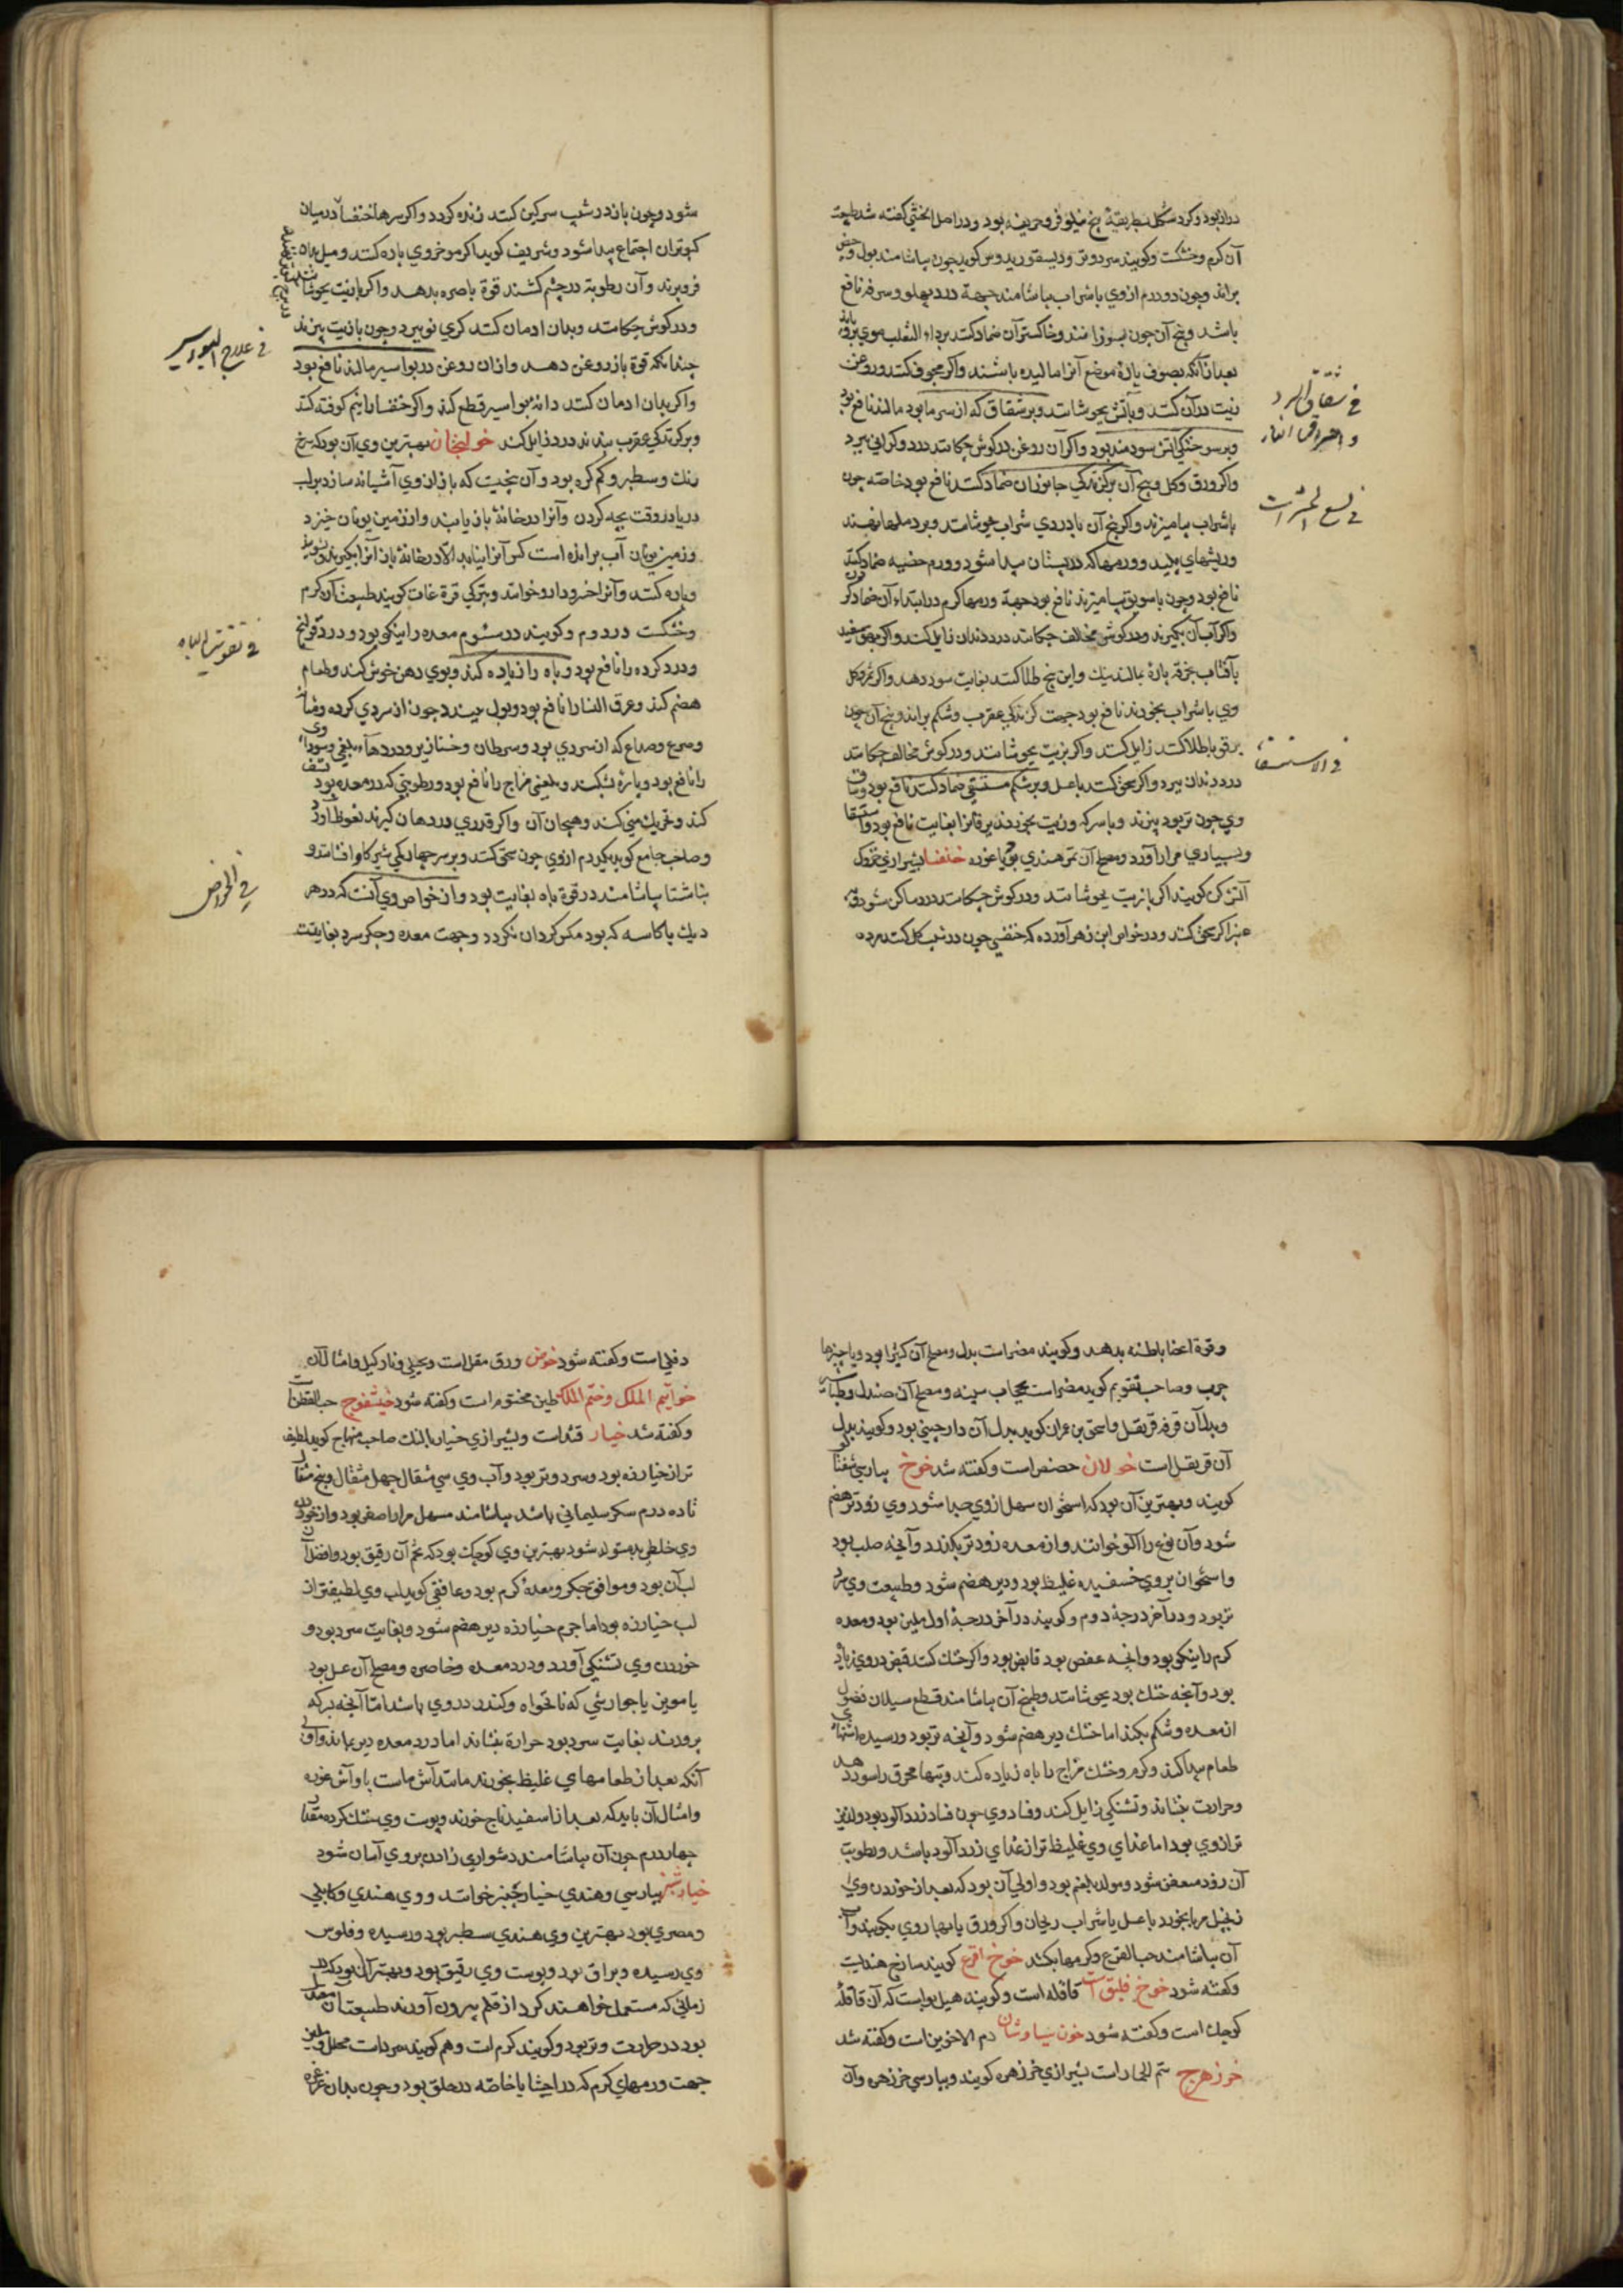 دراز بود و کرد شکل بطریقهٔ بیخ نیلوفر و حریفه بود و در اصل الخنثی کفته شد طبیعت
آن کرم و خشکست و کویند سرد و تر و دیسقوریدوس کوید چون بیاشامند بول و حیض
براند و چون دو درم از وی با شراب بیاشامند جهة درد پهلو و سرفه نافع
باشد و بیخ آن چون بسوزانند و خاکستر آن ضماد کنند بر داء الثعلب موی برویاند
بعد از آنکه بصوف پارهٔ موضع آنرا مالیده باشند و اکر مجوف کنند و روغن
زیت در آن کنند و بآتش بجوشانند و بر شقاق که از سرما بود مالند نافع بود
و بر سوختکی آتش سودمند بود و اکر آن روغن در کوش چکانند درد و کرانی ببرد
و اکر ورق و کل و بیخ آن بر کزندکی جانوران ضماد کنند نافع بود خاصه چون
با شراب بیامیزند و اکر بیخ آن با دردی شراب بجوشانند و بر دملها نهند
و ریشهای پلید و ورمها که در پستان پیدا شود و ورم خصیه ضماد کنند
نافع بود و چون با سویق بیامیزند نافع بود جهة ورمها کرم در ابتداء آن ضماد کردن
و اکر آب آن بکیرند و در کوش مخالف چکانند درد دندان زایل کند و اکر بهق سفید
بآفتاب بخرقه پارهٔ بمالند نیک و این بیخ طلا کنند بغایت سود دهد و اکر ثمر و کل
وی با شراب بخورند نافع بود جهت کزندکی عقرب و شکم براند و بیخ آن چون
بر قوبا طلا کنند زایل کند و اکر بزیت بجوشانند و در کوش مخالف چکانند
درد دندان ببرد و اکر سحق کنند با عسل و بر شکم مستسقی ضماد کنند نافع بود و ساق
وی چون تر بود بپزند و با سرکه و زیت بخورند یرقانرا بغایت نافع بود و استسقا
و بسیاری مرار آورد و مصلح آن تمر هندی بود یا غوره خنفسا بشیرازی خروک
آتش کن کویند اکر با زیت بجوشانند و در کوش چکانند درد ساکن شود
اکر سحق کنند و در خواص ابن زهر آورده که خنفسی چون در شیب کل کنند مرده
في شقاق البرد
و احتراق النار
في لسع الحشرات
في الاستسقا
شود و چون باز در شیب سرکین کنند زنده کردد و اکر سرها خنفسا در میان
کبوتران اجتماع پیدا شود و شریف کوید اکر موخر وی پاره کنند و میل بدان
فرو برند و آن رطوبة در چشم کشند قوة باصره بدهد و اکر با زیت بجوشانند
و در کوش چکانند و بدان ادمان کنند کری نو ببرد و چون با زیت بپزند
چندانکه قوة باز روغن دهد و از ان روغن در بواسیر مالند نافع بود
و اکر بدان ادمان کنند دانهٔ بواسیر قطع کند و اکر خنفسا را نیم کوفته کنند
و بر کزندکی عقرب بندند درد زایل کند خولنجان بهترین وی آن بود که سرخ
رنک و سطبر و کم کره بود و آن بیخیست که باز از وی آشیانه سازد بر لب
دریا در وقت بچه کردن و آنرا در خانهٔ باز یابند و از زمین یونان خیزد
و زمین یونان آب برآمده است کس آنرا نیابد الا در خانهٔ باز آنرا بکیرند و بشویند
و پاره کنند و آنرا خسرودارو خوانند و بترکی قرة غات کویند طبیعت آن کرم
و خشکست در دوم و کویند در سیوم معده را نیکو بود و درد قولنج
و درد کرده را نافع بود و باه را زیاده کند و بوی دهن خوش کند و طعام
هضم کند و عرق النسا را نافع بود و بول ببندد چون از سردی کرده و مثانه
و صرع و صداع که از سردی بود و سرطان و خنازیر و دردهاء بلغمی و سوداوی
را نافع بود و باره بشکند و بلغمی مزاج را نافع بود و رطوبتی که در معده بود نشف
کند و تحریک منی کند و هیجان آن و اکر قدری در دهان کیرند نعوظ آورد
و صاحب جامع کوید یکدرم از وی چون سحق کنند و بر سر چهار یکی شیر کاو افشانند و
بناشتا بیاشامند در قوة باه بغایت بود و از خواص وی آنست که در هر
دیک یا کاسه که بود مکس کردان نکردد و جهت معده و جکر سرد بغایتست
في علاج البواسیر
في تقویة الباه
في الخواص
و قوة اعضا باطنه بدهد و کویند مضر است بدل و مصلح آن کثیرا بود و یا چیزها
چرب و صاحب تقویم کوید مضر است بحجاب سینه و مصلح آن صندل و طباشیر
و بدل آن قرفه قرنفل و اسحق بن عمران کوید بدل آن دارچینی بود و کویند بدل
آن قرنفل است خولان حضض است و کفته شد خوخ بپارسی شفتالو
کویند و بهترین آن بود که استخوان سهل از وی جدا شود وی زودتر هضم
شود و آن نوع را آلو خوانند و از معده زودتر بکذرد و آنچه صلب بود
و استخوان بر وی خسفیده غلیظ بود و دیر هضم شود و طبیعت وی سرد
تر بود و در آخر درجهٔ دوم و کویند در آخر درجهٔ اول ملین بود و معده
کرم را نیکو بود و آنچه عفص بود قابض بود و اکر خشک کنند قبض در وی زیاد
بود و آنچه خشک بود بجوشانند و طبیخ آن بیاشامند قطع سیلان فضول
از معده و شکم بکند اما خشک دیر هضم شود و آنچه تر بود و رسیده اشتهای
طعام پیدا کند و کرم و خشک مزاج را باه زیاده کند و تبها محرق را سود دهد
و حرارت بنشاند و تشنکی زایل کند و فساد وی چون فساد زردآلو بود و لذیذ
تر از وی بود اما غذای وی غلیظ تر از غذای زردآلو باشد و رطوبت
آن زود متعفن شود و مولد بلغم بود و اولی آن بود که بعد از خوردن وی
زنجبیل مربا بخورد با عسل یا شراب ریحان و اکر ورق یا بهار وی بکوبند و آب
آن بیاشامند حب القرع و کرمها بکشد خوخ اقرع کویند سانح هندیست
و کفته شود خوخ فلیق است قاقله است و کویند هیل بوا است که آن قاقلهٔ
کوچک است و کفته شود خون سیاوشان دم الاخوین است و کفته شد
خرزهرج سم الحمار است بشیرازی خرزهره کویند و بپارسی خرزهره و آن
دفلی است و کفته شود خوص ورق مقل است و نخل و نارکیل و امثال آن
خواتیم الملک و ختم الملک طین مختوم است و کفته شود خیشفوج حب القطن است
و کفته شد خیار قثد است و بشیرازی خیار بالنک صاحب منهاج کوید لطیف
تر از خیارزه بود و سرد و تر بود و آب وی سی مثقال چهل مثقال و پنج مثقال
تا ده درم سکر سلیمانی باشد بیاشامند مسهل مرار اصفر بود و از خوردن
وی خلطی بد متولد شود بهترین وی کوچک بود که تخم آن رقیق بود و افضل آن
لب آن بود و موافق جکر و معدهٔ کرم بود و غافقی کوید لب وی لطیفتر از
لب خیارزه بود اما جرم خیارزه دیر هضم شود و بغایت سرد بود و
خوردن وی تشنکی آورد و درد معده و خاصره و مصلح آن عسل بود
یا مویز یا جوارشی که نانخواه و کندر در وی باشد اما آنچه بسرکه
پرورند بغایت سرد بود حرارة بنشاند اما در معده دیر بماند و اولی
آنکه بعد از طعامهای غلیظ بخورند مانند آش ماست با و آش غوره
و امثال آن باید که بعد از اسفیدباج خورند و پوست وی خشک کرده مقدار
چهار درم چون آن بیاشامند دشواری زادن بر وی آسان شود
خیارشنبر بپارسی و هندی خیارچنبر خوانند و وی هندی و کابلی
و مصری بود بهترین وی هندی سطبر بود و رسیده و فلوس
وی رسیده و براق بود و پوست وی رقیق بود و بهتر آن بود که
زمانی که مستعمل خواهند کرد از قلم بیرون آورند طبیعت آن معتدل
بود در حرارت و تر بود و کویند کرم است و هم کویند سرد است محلل و ملین
جهت ورمهای کرم که در احشا یا خاصه در حلق بود و چون بدان غرغره